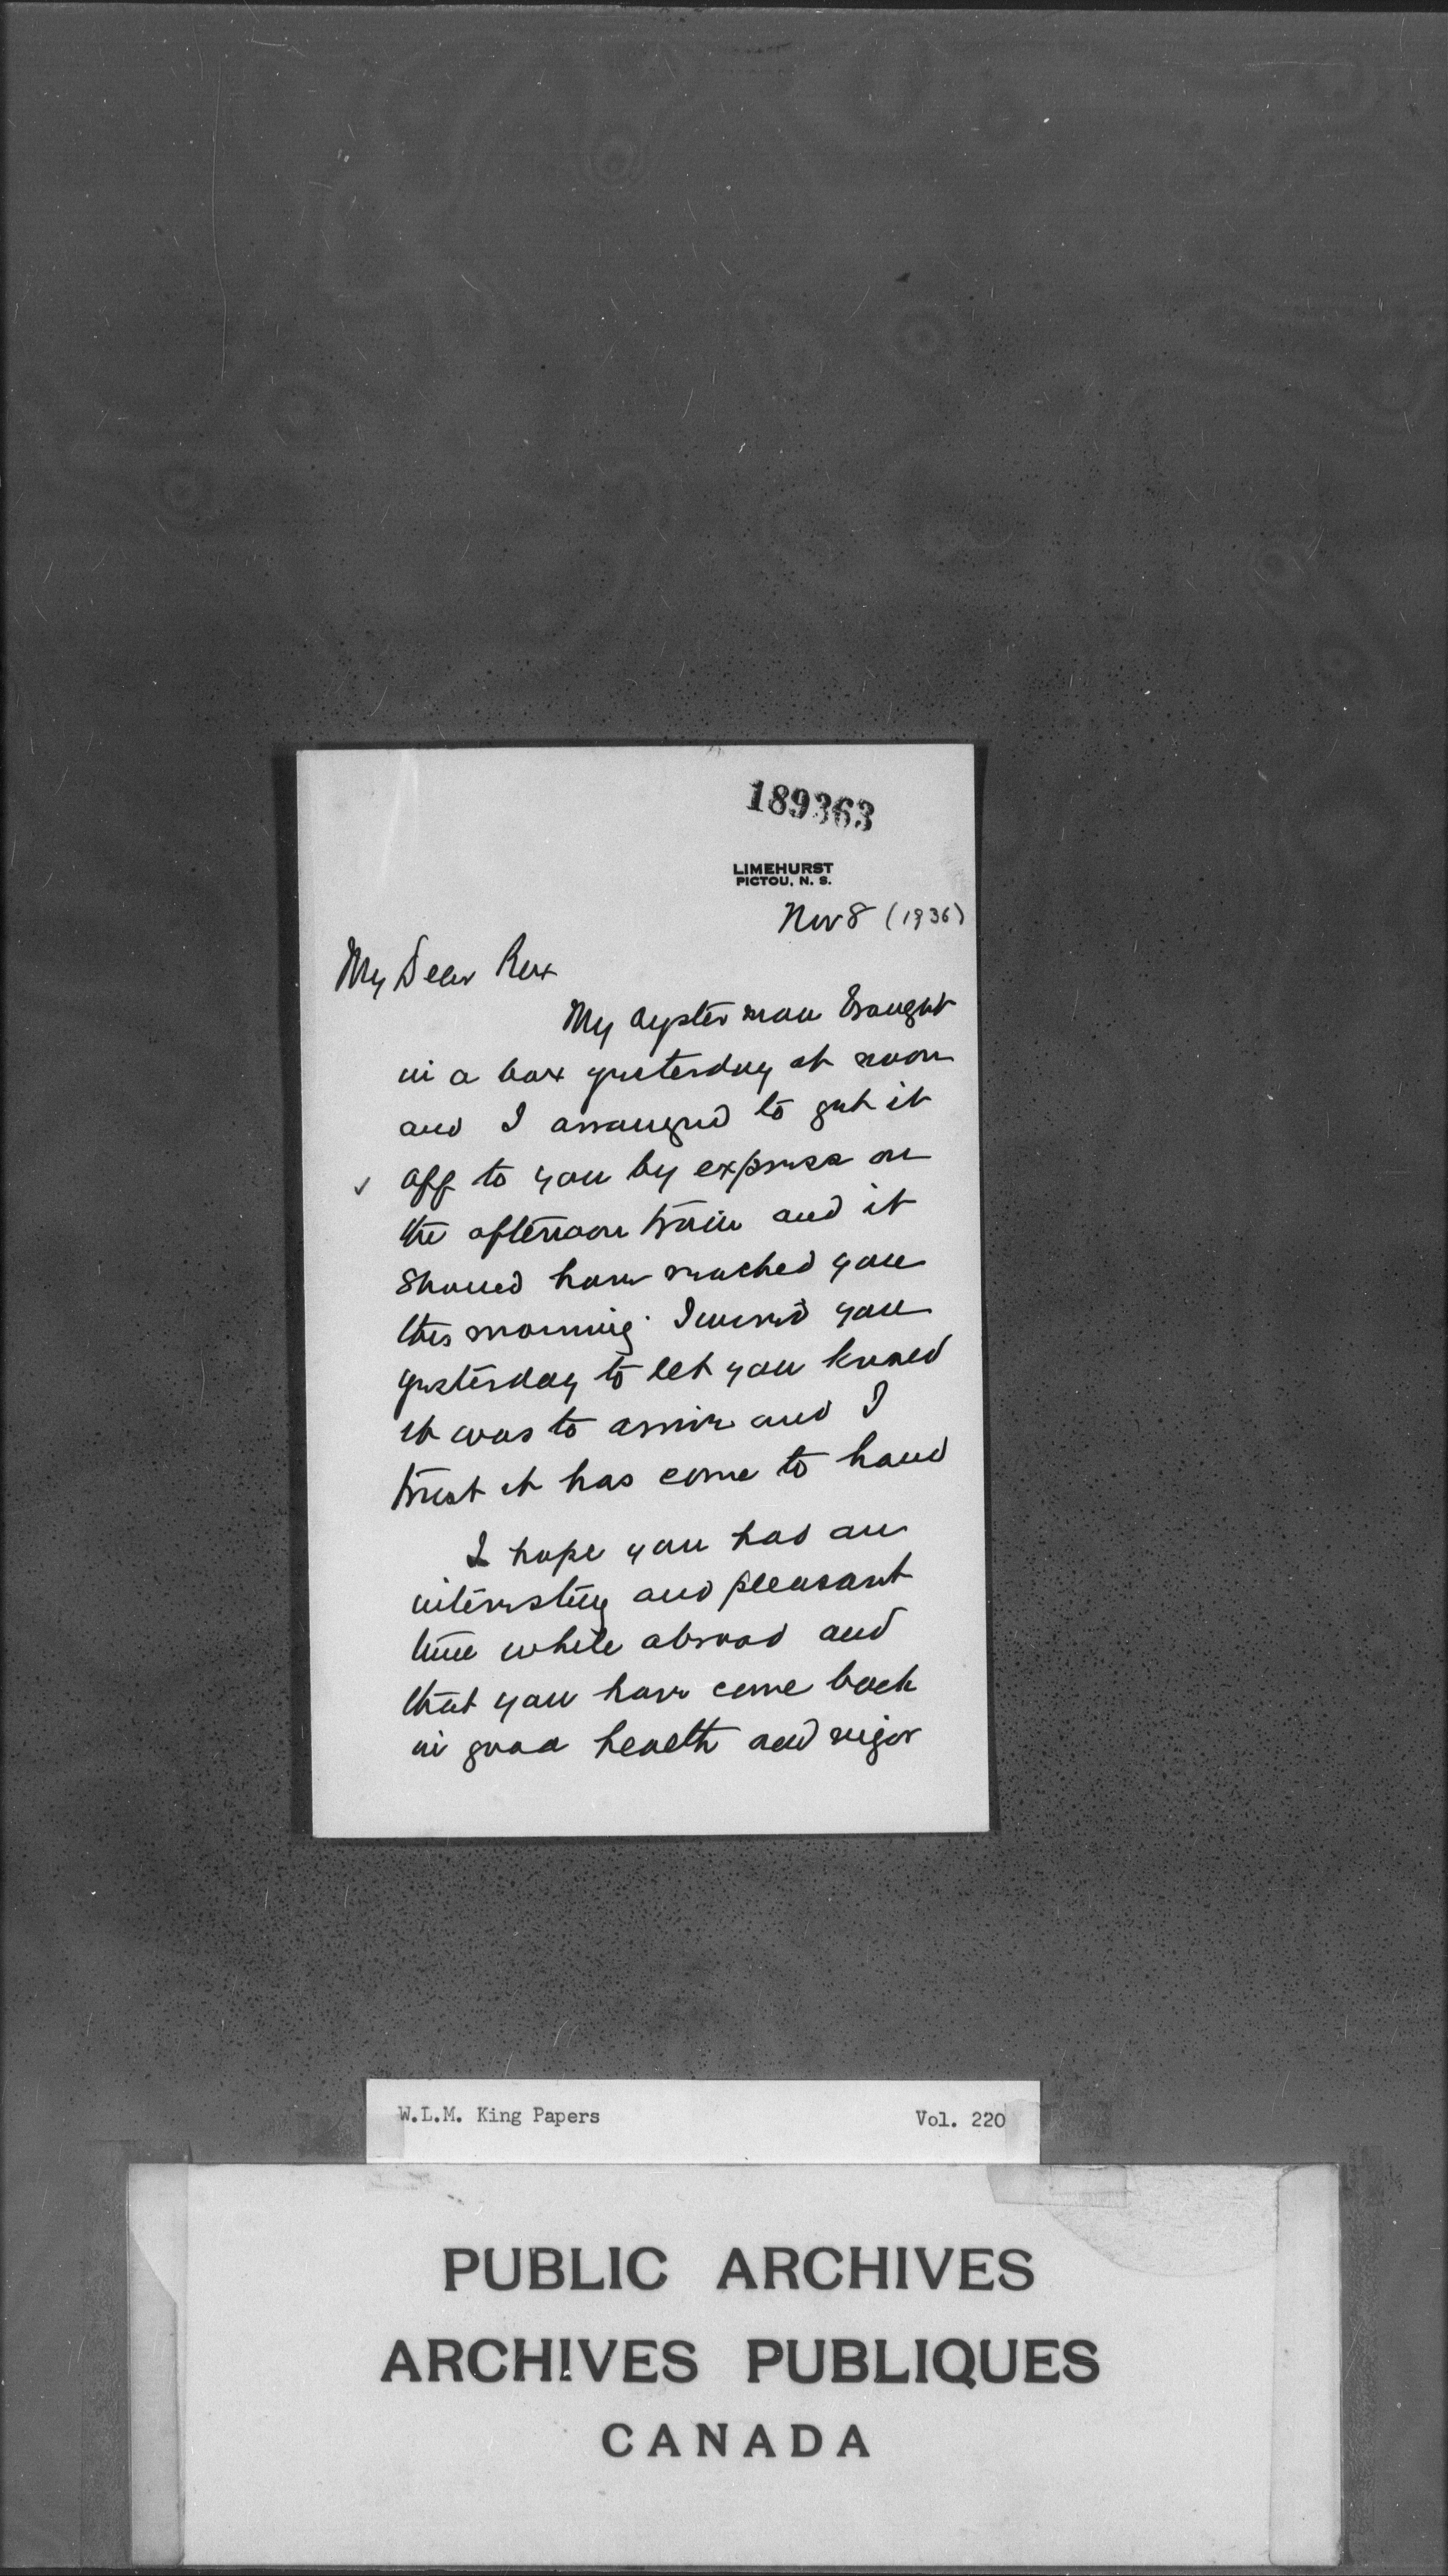 189363
LIMEHURST
PICTOU, N. S.
Nov 8 (1936)
My Dear Rex
My oyster man brought
in a box yesterday at noon
and I arranged to get it
✓ off to you by express on
the afternoon train and it
should have reached you
this morning. I wired you
yesterday to let you know
it was to arrive and I
trust it has come to hand
I hope you had an
interesting and pleasant
time while abroad and
that you have come back
in good health and vigor
W.L.M. King Papers Vol. 220
PUBLIC ARCHIVES
ARCHIVES PUBLIQUES
CANADA